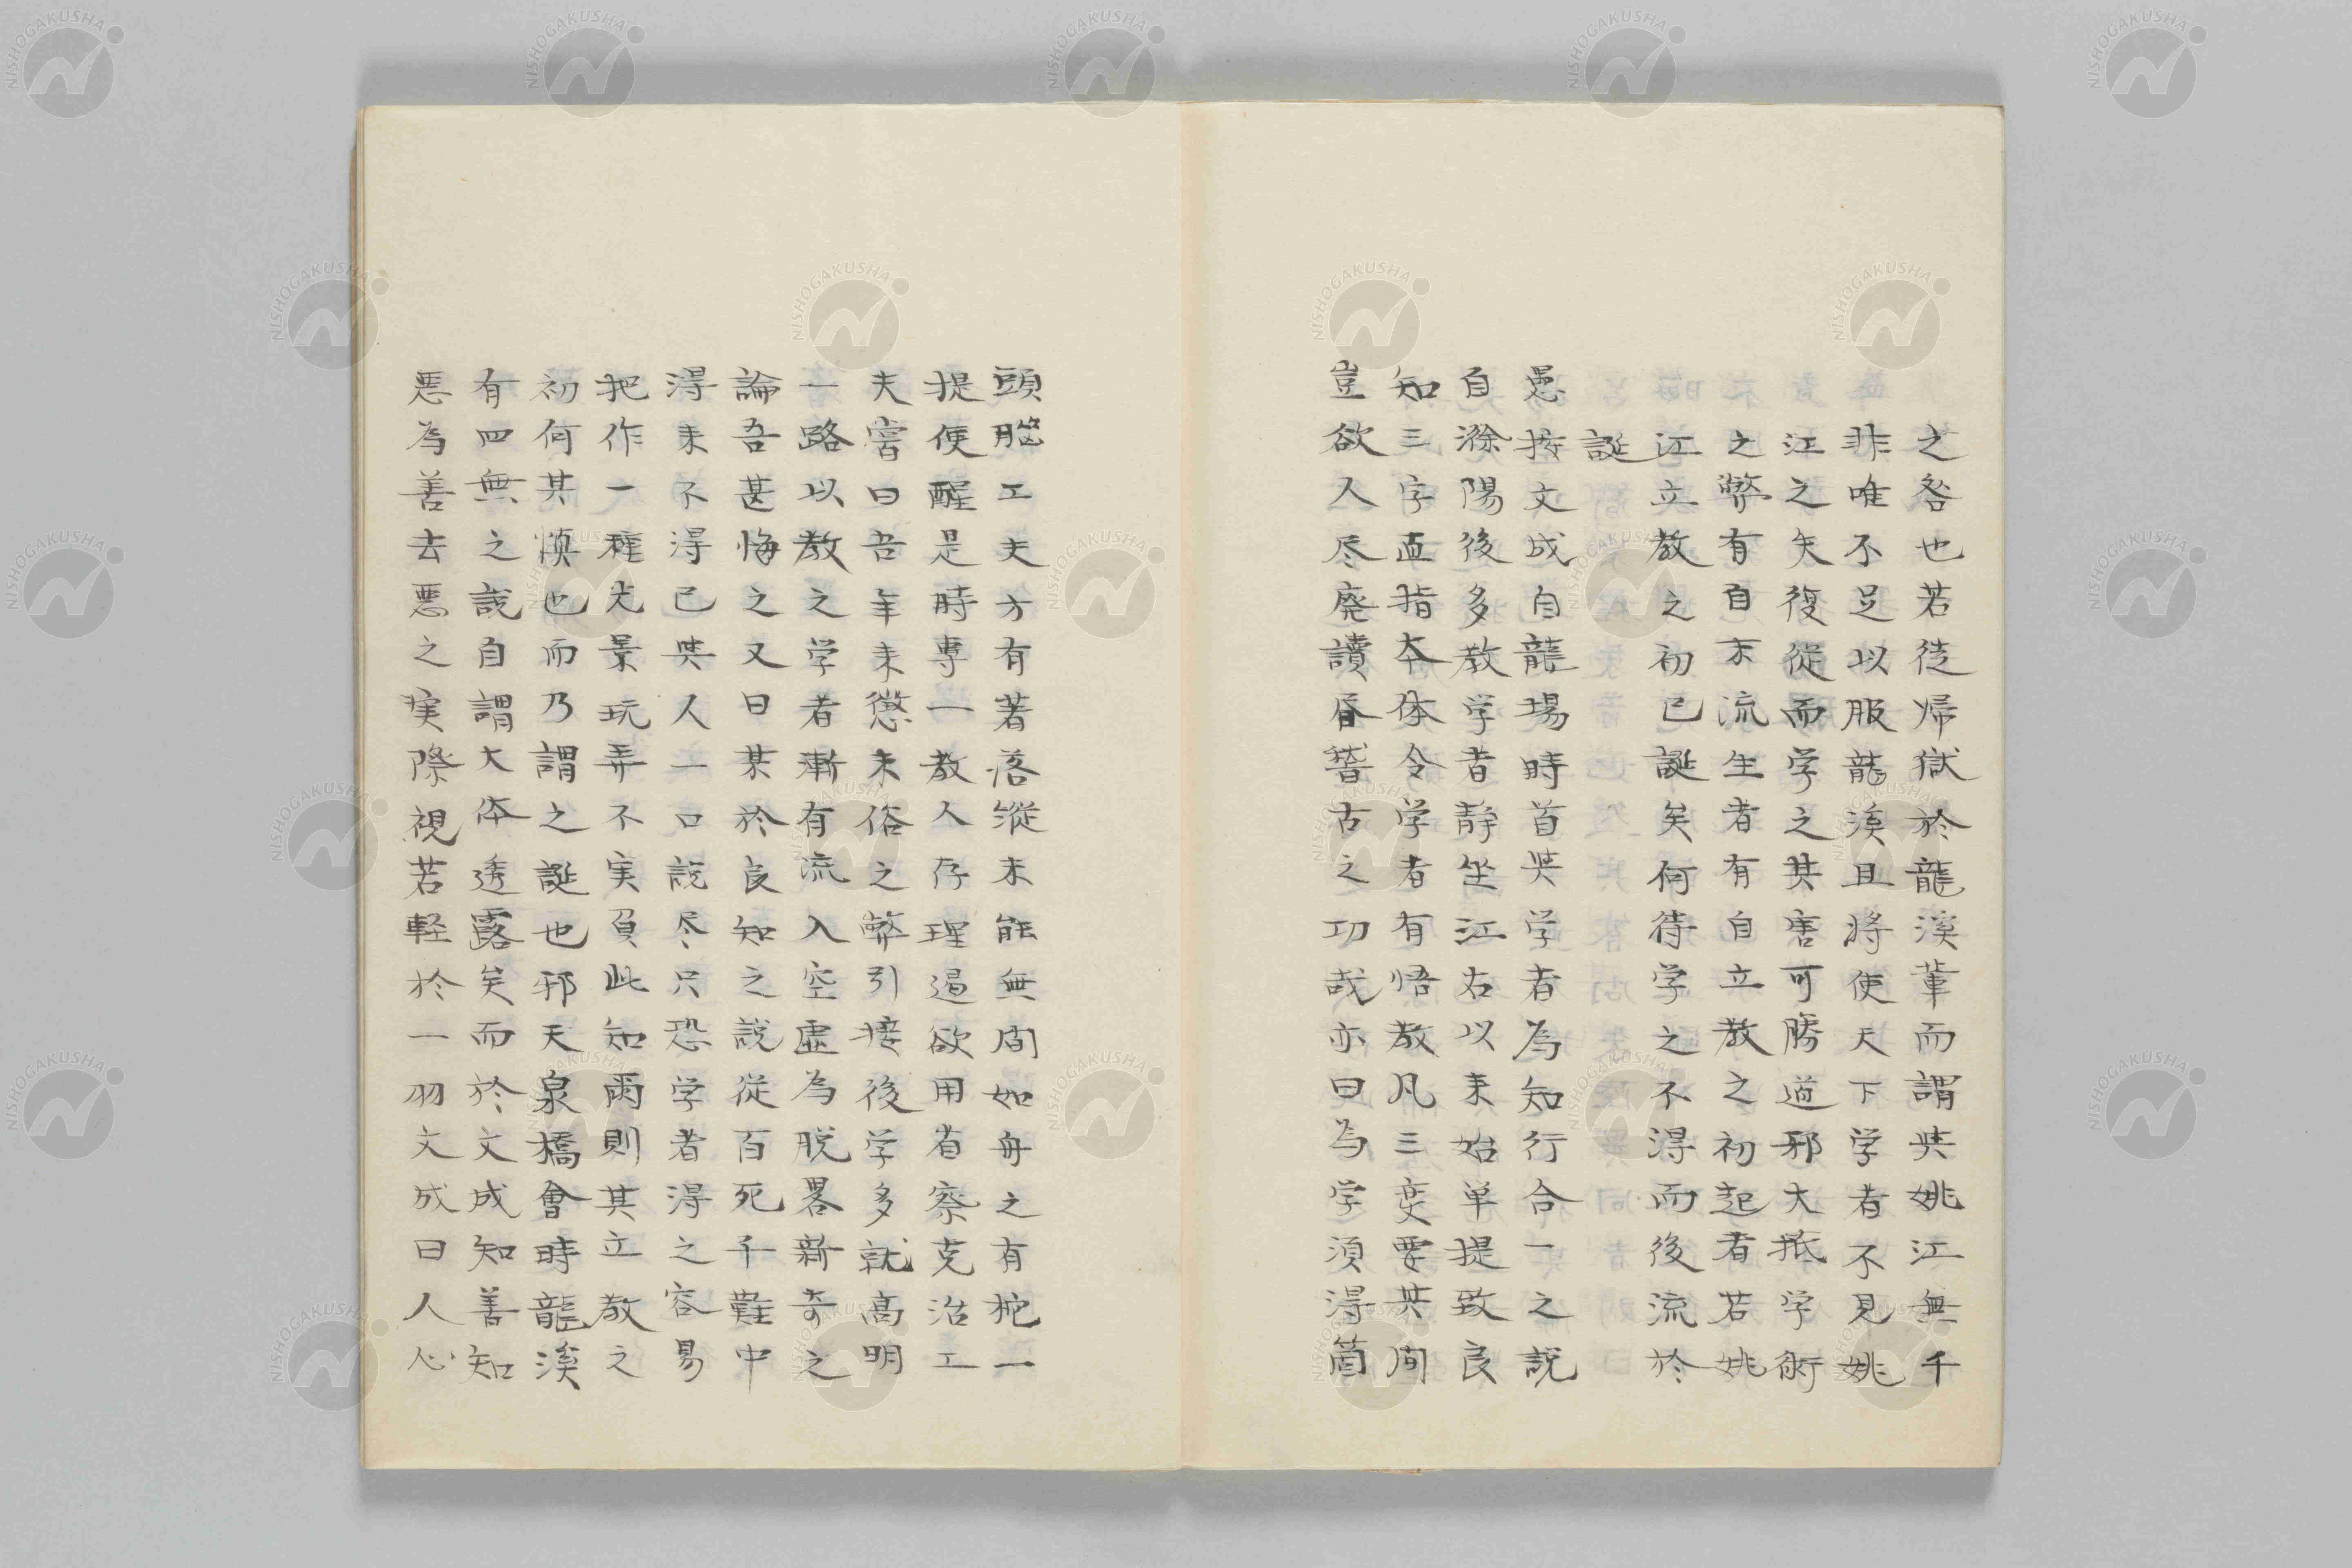 之咎也若徒帰獄於龍溪輩而謂与姚江無干
非唯不足以服龍溪且將使天下学者不見姚
江之失復從而学之其害可勝道邪大抵学術
之弊有自末流生者有自立教之初起者若姚
江立教之初已誕矣何待学之不得而後流於
誕
愚按文成自龍場時首与学者為知行合一之説
自滁陽後多教学者静坐江右以来始单提致良
知三字直指本体令学者有悟教凡三変要其間
豈欲人尽廃讀書稽古之功哉亦曰為学須得箇
頭腦工夫方有著落縱未能無間如舟之有柁一
提便醒是時專一教人存理遏欲用省察克治工
夫嘗曰吾年来懲末俗之弊引接後学多就高明
一路以教之学者漸有流入空虚為脱畧新奇之
論吾甚悔之又曰某於良知之説從百死千難中
得来不得已与人一口説尽只恐学者得之容易
把作一種光景玩弄不実負此知爾則其立教之
初何其慎也而乃謂之誕也邪天泉橋會時龍溪
有四無之説自謂大体透露矣而於文成知善知
悪為善去悪之実際視若軽於一羽文成曰人心
NISHOGAKUSHA